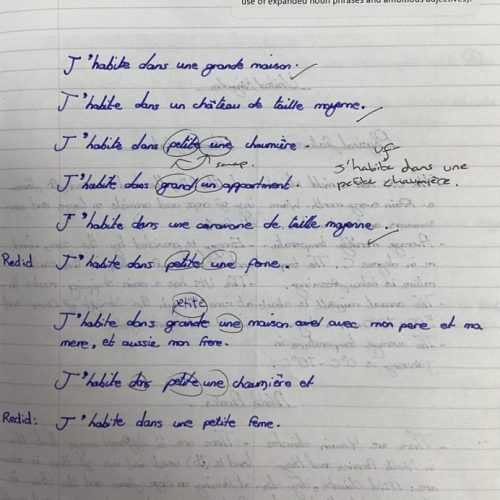 use of expanded noun phrases and ambitious adjectives).
J'habite dans une grande maison.
J'habite dans un château de taille moyenne.
J'habite dans petite une chaumière.
swap.
J'habite dans une
petite chaumière.
J'habite dans grand un appartment.
J'habite dans une caravane de taille moyenne.
Redid J'habite dans petite une ferme.
petite
J'habite dans grande une maison avel avec mon pere et ma
mere, et aussie mon frere.
J'habite dans petite une chaumière et
Redid: J'habite dans une petite ferme.